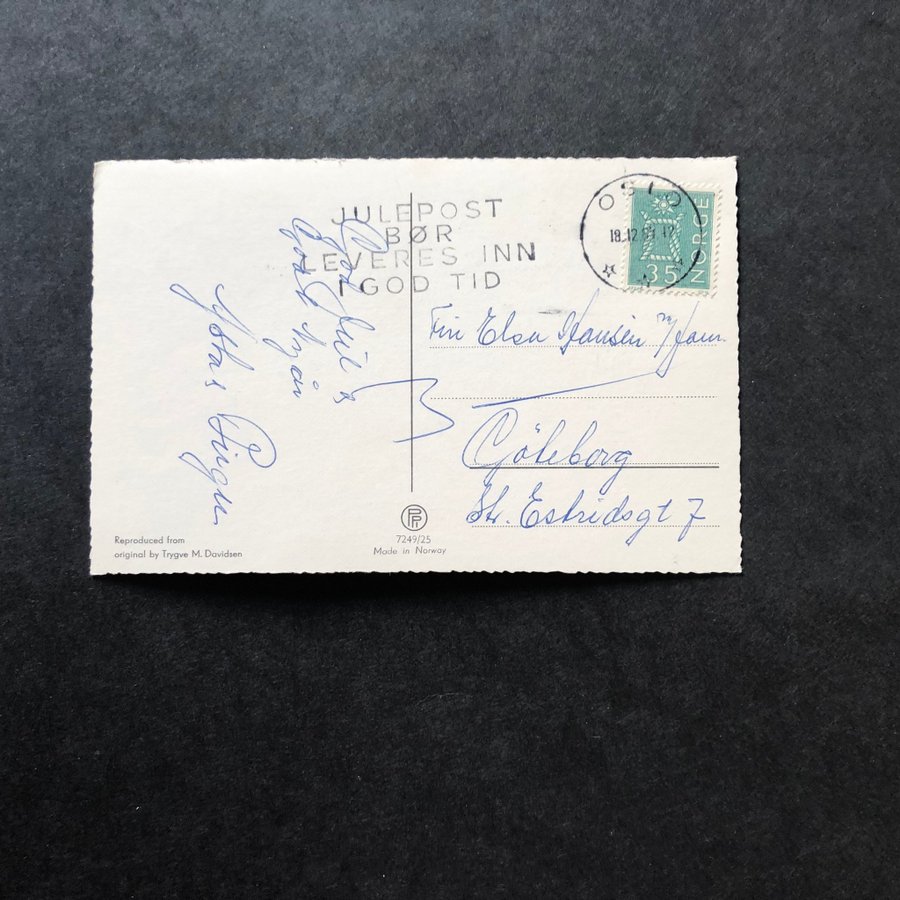 JULEPOST
BØR
LEVERES INN
I GOD TID
OSLO
18.12. 12
35
NORGE
God Jul &
Godt Nyår
Fru Elsa Hansen m/fam.
Göteborg
St. Estridsgt 7
Reproduced from
original by Trygve M. Davidsen
7249/25
Made in Norway